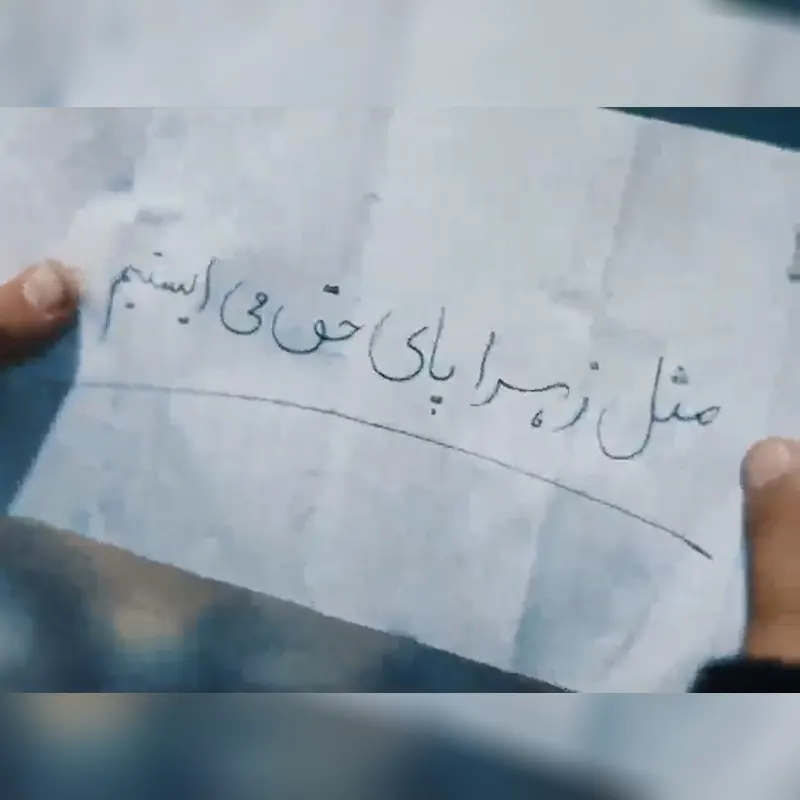 مثل زهرا پای حق می ایستیم